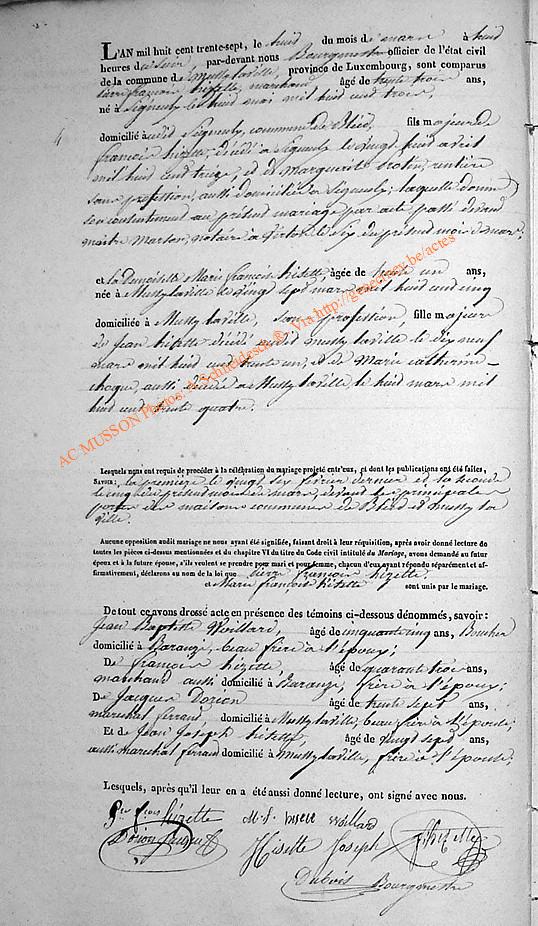 L'AN mil huit cent trente-sept, le huid du mois de marre à huid
heures du soir, par-devant nous Bourgmestre officier de l'état civil
de la commune de Mussy laville, province de Luxembourg, sont comparus
pierre françois hizette, marchand âgé de trente trois ans,
né à Signeuly le huid mil huid cend trois,
domicilié audit Signeuly, commune de Bleid, fils majeur de
françois hizette, décidé a Signeuly le vingt huid avril
mil huid cend treize, et de Marguerite rentière
sans profession, aussi domicilier a Signeuly; laquelle donne
son contentement au présend mariage par acte passé devand
maitre Marson, notaire a Virton le six du présend mois de marre,
et la Demoiselle Marie françoise hizette, âgée de trente un ans,
née à Mussy laville le vingt sept marre mil huid cend cinq
domiciliée à Mussy laville, sans profession, fille majeure
de jean hizette décidé audit Mussy laville le dix neuf
marre mil huid cend trente un, et de Marie catherine
choque, aussi décidée a Mussy laville, le huid marre mil
huid cend trente quatre.
Lesquels nous ont requis de procéder à la célébration du mariage projeté entr'eux, et dont les publications ont été faites,
SAVOIR: la première le vingt six février dernier et la seconde
le cinq du présend mois de marre, devand les principales
portes des maisons communes de Bleid et Mussy la
ville.
Aucune opposition audit mariage ne nous ayant été signifiée, faisant droit à leur réquisition, après avoir donné lecture de
toutes les pièces ci-dessus mentionnées et du chapitre VI du titre du Code civil intitulé du Mariage, avons demandé au futur
époux et à la future épouse, s'ils veulent se prendre pour mari et pour femme, chacun d'eux ayant répondu séparément et af-
firmativement, déclarons au nom de la loi que pierre françois hizette.
et Marie françoise hizette sont unis par le mariage.
De tout ce avons dressé acte en présence des témoins ci-dessous dénommés, savoir:
Jean Baptiste Woillard, âgé de cinquante cinq ans, Boucher
domicilié à Barange, beau frère a l'époux;
De françois hizette âgé de quarante trois ans,
marchand aussi domicilié à Barange, frère a l'époux;
De Jacques Dozion âgé de trente sept ans,
marechal ferrand, domicilié à Mussy laville, beau frère a l'épouse;
Et de Jean Joseph hizette âgé de vingt sept ans,
aussi marechal ferrand domicilié à Mussy laville, frère a l'épouse;
Lesquels, après qu'il leur en a été aussi donné lecture, ont signé avec nous.
Pre frois hizette M. f. hizette Woillard
Dosion Jacque Hisette Joseph f. hizette
Dubois Bourgmestre
AC MUSSON Photos: A. Schneidesch ®. Via http://genealogy.be/actes